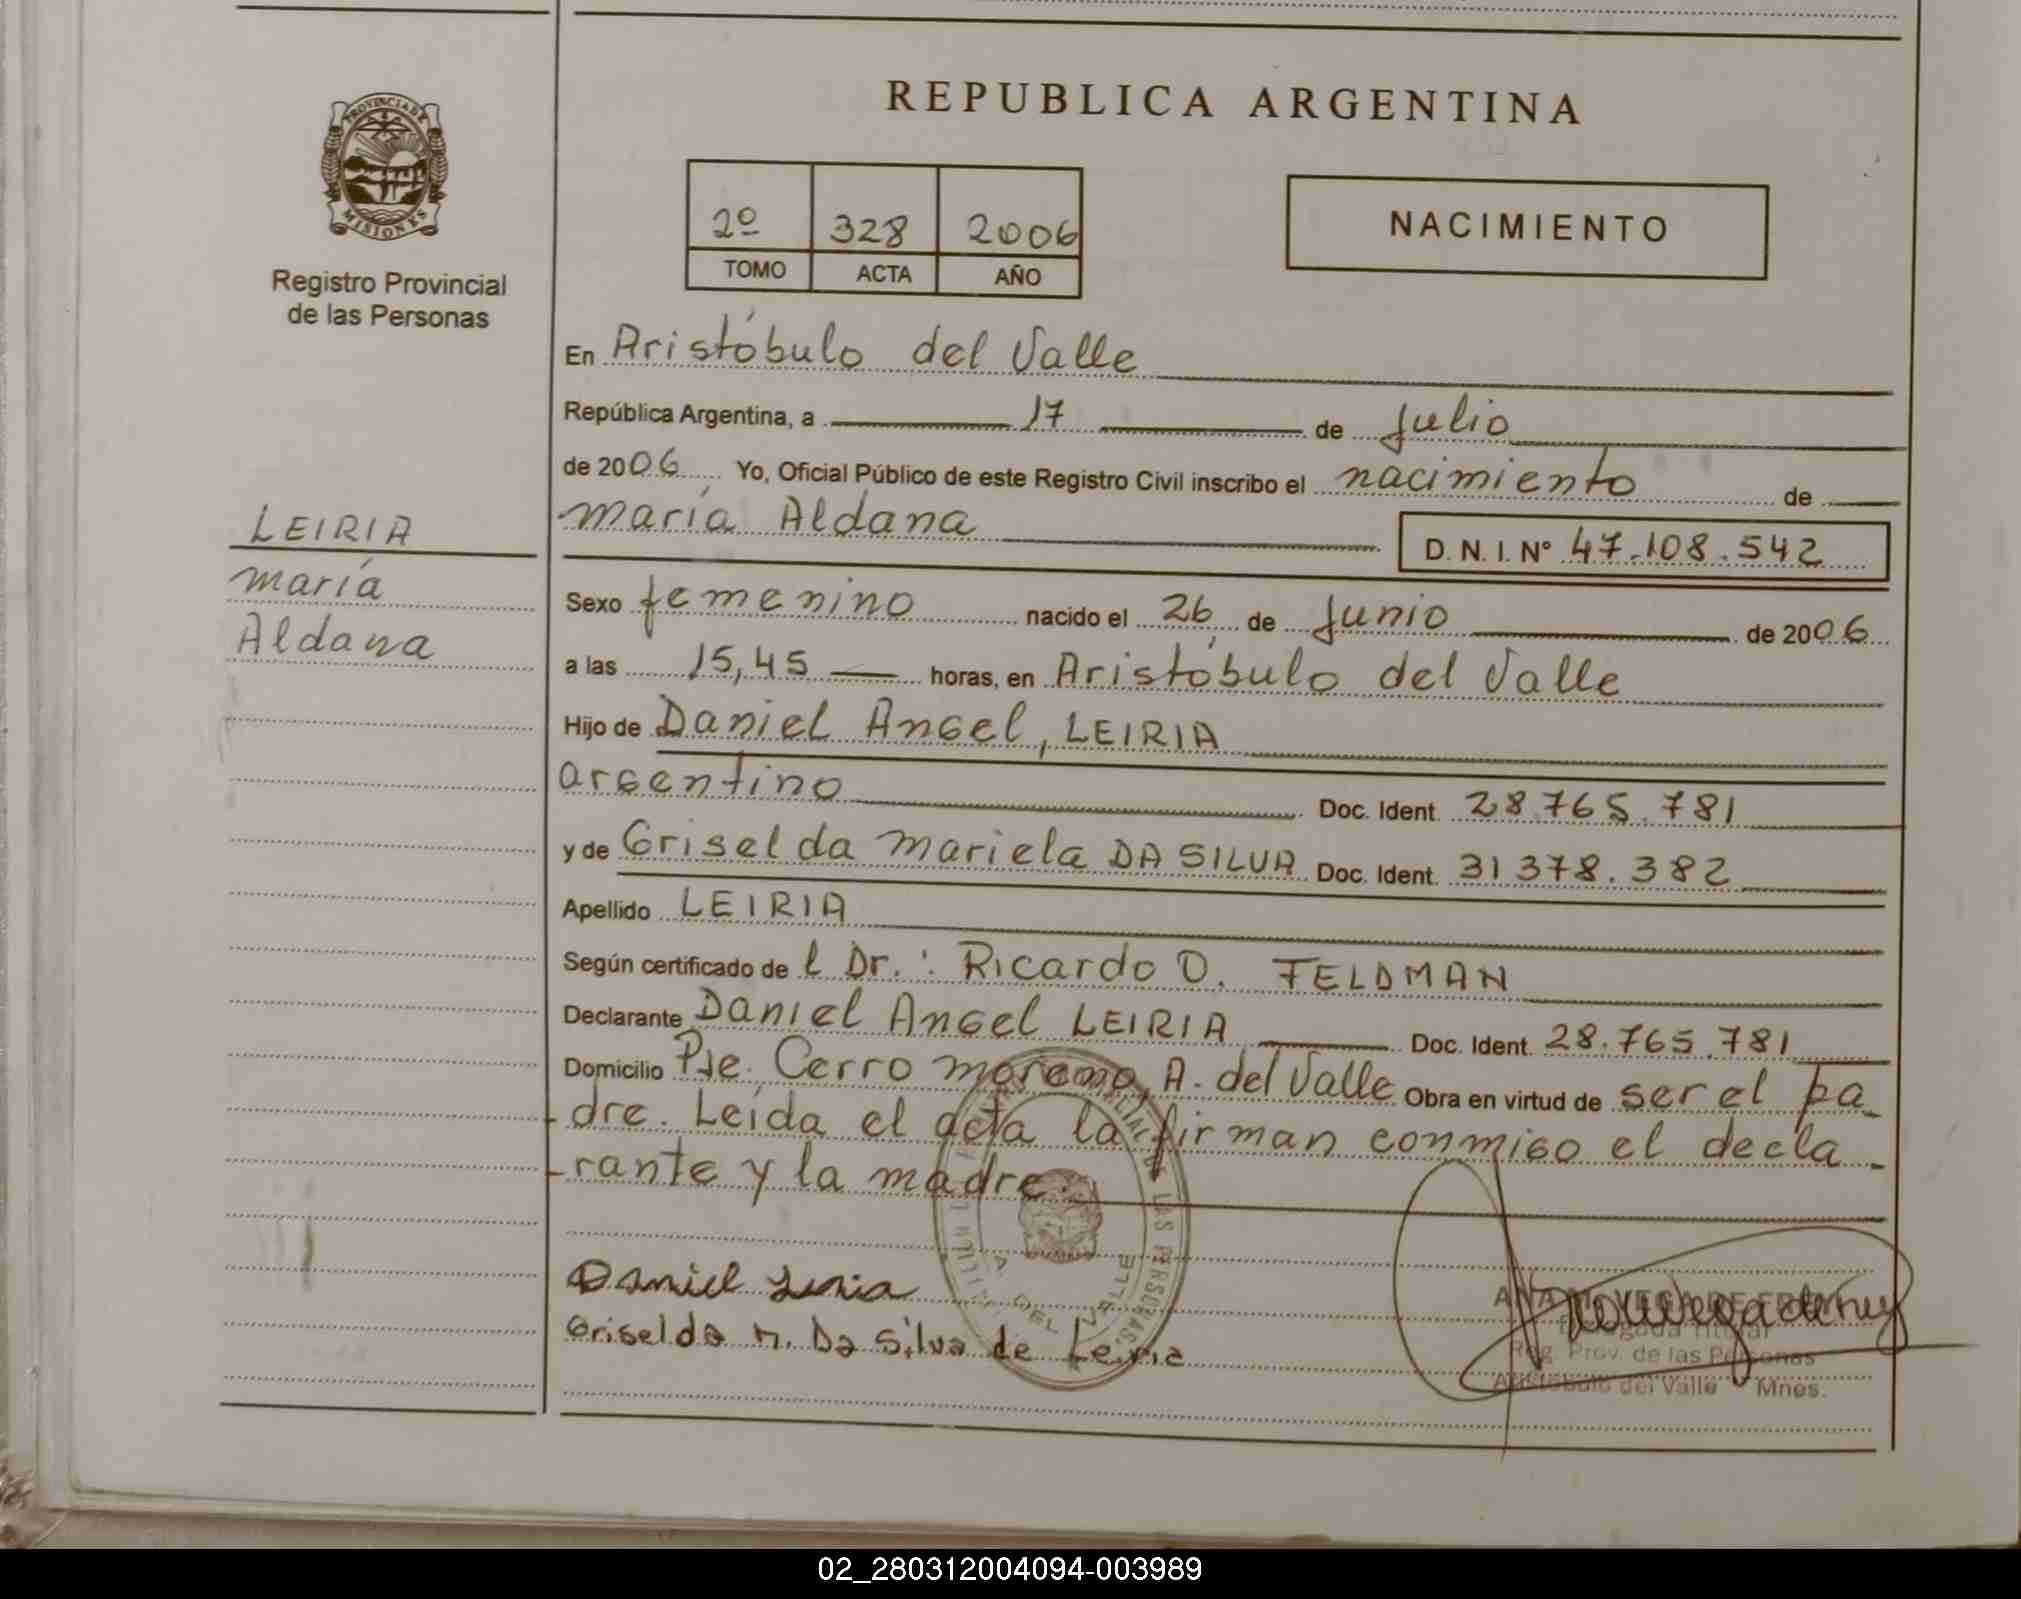 REPUBLICA ARGENTINA
PROVINCIA DE
MISIONES
Registro Provincial
de las Personas
2º 328 2006
TOMO ACTA AÑO
NACIMIENTO
En Aristóbulo del Valle
República Argentina, a 17 de Julio
de 2006 Yo, Oficial Público de este Registro Civil inscribo el nacimiento de
María Aldana D. N. I. Nº 47.108.542
LEIRIA
María
Aldana
Sexo femenino nacido el 26 de Junio de 2006
a las 15,45 horas, en Aristóbulo del Valle
Hijo de Daniel Angel, LEIRIA
argentino Doc. Ident. 28.765.781
y de Griselda Mariela DA SILVA Doc. Ident. 31378.382
Apellido LEIRIA
Según certificado de l Dr.: Ricardo O. FELDMAN
Declarante Daniel Angel LEIRIA Doc. Ident. 28.765.781
Domicilio Pje. Cerro Moreno, A. del Valle Obra en virtud de ser el pa-
-dre. Leída el acta la firman conmigo el decla-
-rante y la madre.
Daniel Leiria
Griselda M. Da Silva de Leiria
DE LAS PERSONAS
DEL VALLE
Reg. Prov. de las Personas
Aristóbulo del Valle Mnes.
02_280312004094-003989